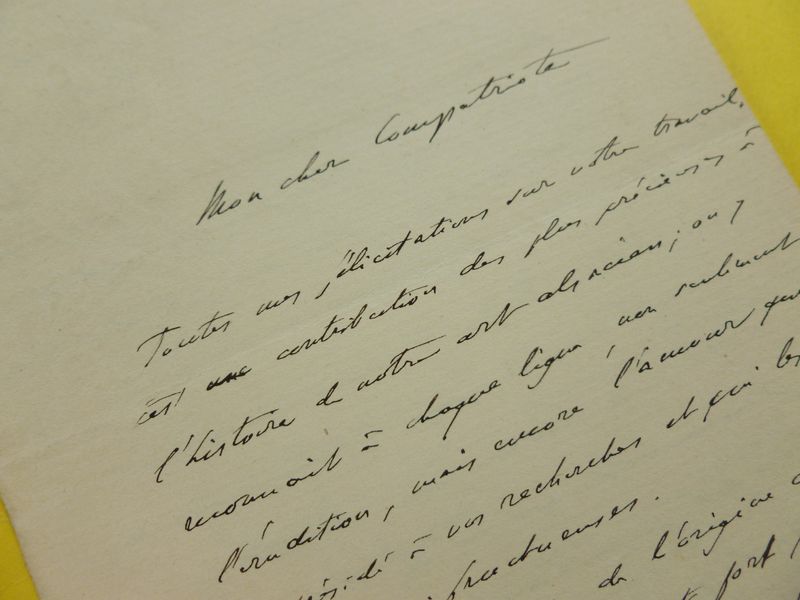 Mon cher Compatriote
Toutes mes félicitations sur votre travail,
c'est une contribution des plus précieuses à
l'histoire de notre art alsacien; on y
reconnait à chaque ligne, non seulement
l'érudition, mais encore l'amour qui
présidé à vos recherches et qui les
fructueuses.
de l'origine
fort